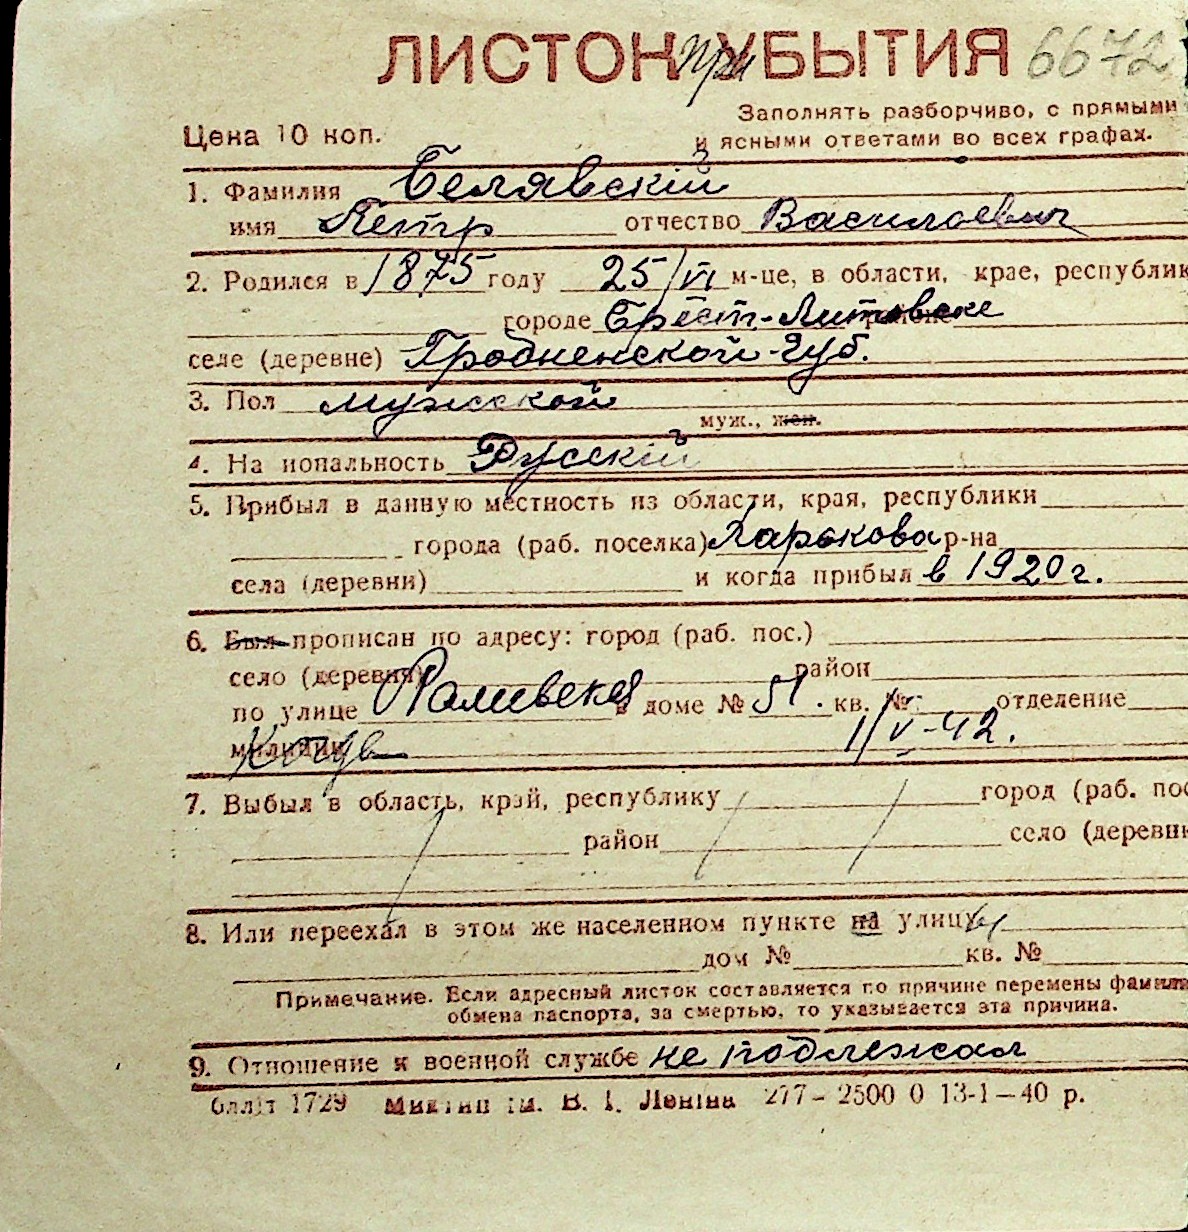 ЛИСТОК при УБЫТИЯ 6672
Заполнять разборчиво, с прямыми
Цена 10 коп. и ясными ответами во всех графах.
1. Фамилия Белявскій
имя Петр отчество Васильевич
2. Родился в 1875 году 25/VI м-це, в области, крае, республик
городе Брест-Литовске
селе (деревне) Гродненской губ.
3. Пол мужской
муж., жен.
4. На иональность Русскій
5. Прибыл в данную местность из области, края, республики
города (раб. поселка) Харькова р-на
села (деревни) и когда прибыл в 1920 г.
6. Был прописан по адресу: город (раб. пос.)
село (деревня) район
по улице в доме № 51. кв. № отделение
милиции Когда 1/V-42.
7. Выбыл в область, край, республику город (раб. пос
район село (деревн
8. Или переехал в этом же населенном пункте на улицу
дом № кв. №
Примечание. Если адресный листок составляется по причине перемены фамили
обмена паспорта, за смертью, то указывается эта причина.
9. Отношение к военной службе не подлежал
1729 ім. В. І. Леніна 277– 2500 0 13-1–40 р.